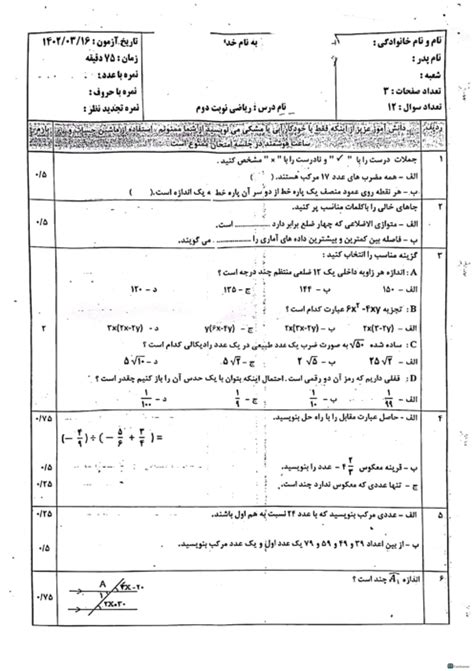 نام و نام خانوادگی :
به نام خدا
تاریخ آزمون : ۱۴۰۲/۰۳/۱۶
نام پدر :
زمان : ۷۵ دقیقه
شعبه :
نمره با عدد :
تعداد صفحات : ۳
نمره با حروف :
تعداد سوال : ۱۲
نام درس : ریاضی نوبت دوم
نمره تجدید نظر :
ردیف دانش آموز عزیز از اینکه فقط با خودکار آبی یا مشکی می نویسید از شما ممنونم . استفاده از ماشین حساب و
ساعت هوشمند در جلسه امتحان ممنوع است
۱ جملات درست را با " ✓ " و نادرست را با " × " مشخص کنید .
الف - همه مضرب های عدد ۱۷ مرکب هستند. ( ) ۰/۵
ب - هر نقطه روی عمود منصف یک پاره خط از دو سر آن پاره خط به یک اندازه است. ( )
۲ جاهای خالی را با کلمات مناسب پر کنید.
الف - متوازی الاضلاعی که چهار ضلع برابر دارد ............ است. ۰/۵
ب - فاصله بین کمترین و بیشترین داده های آماری را ............ می گویند.
۳ گزینه مناسب را انتخاب کنید :
A : اندازه هر زاویه داخلی یک ۱۲ ضلعی منتظم چند درجه است ؟
الف - ۱۵۰ ب - ۱۴۴ ج - ۱۳۵ د - ۱۲۰
B : تجزیه 6x² -4xy عبارت کدام است ؟
الف - 2x(3-2y) ب - 2x(3x-2y) ج - y(6x-4y) د - 2x(2x-2y) ۲
C : ساده شده √50 به صورت ضرب یک عدد طبیعی در یک عدد رادیکالی کدام است ؟
الف - 25√2 ب - 2√5 ج - 5√2 د - 5√10
D : قفلی داریم که رمز آن دو رقمی است. احتمال اینکه بتوان با یک حدس آن را باز کنیم چقدر است ؟
الف - 1/99 ب - 1/10 ج - 1/9 د - 1/100
۴ الف - حاصل عبارت مقابل را با راه حل بنویسید. ۰/۷۵
(- 4/9) ÷ (- 5/6 + 3/4) =
ب - قرینه معکوس 4 2/3 - عدد را بنویسید. ۰/۵
ج - تنها عددی که معکوس ندارد چند است. ۰/۲۵
۵ الف - عددی مرکب بنویسید که با عدد ۲۴ نسبت به هم اول باشند. ۰/۲۵
ب - از بین اعداد ۳۹ و ۴۹ و ۵۹ و ۷۹ یک عدد اول و یک عدد مرکب بنویسید. ۰/۵
۶ اندازه A₁ چند است ؟
A 4x-20
1
2x+30 ۰/۷۵